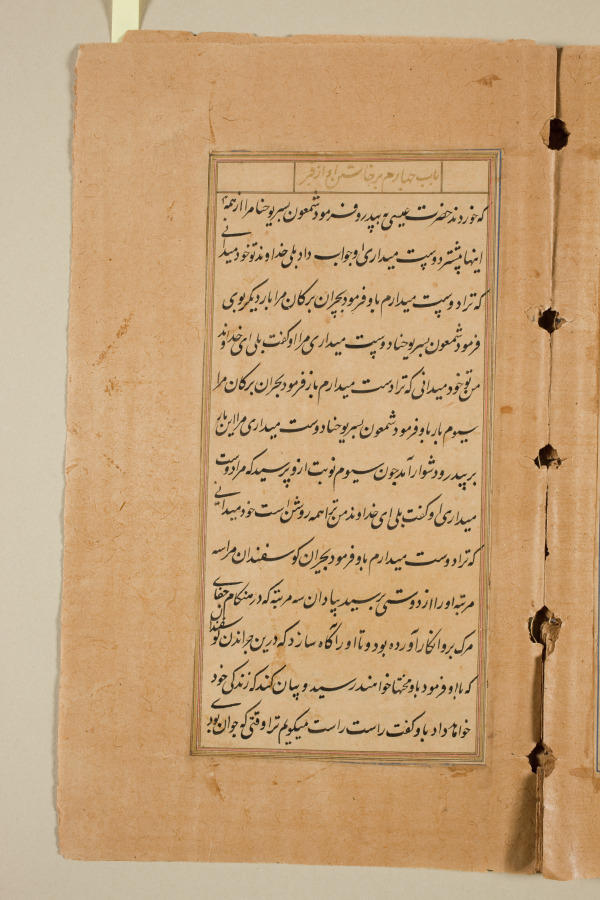 باب چهارم برخاستن او از قبر
که خوردند حضرت عیسی به بیدرو فرمود شمعون پسر یوحنا مرا از همه
اینها بیشتر دوست میداری او جواب داد بلی خداوند تو خود میدانی
که ترا دوست میدارم باو فرمود بچران برکان مرا بار دیکر بوی
فرمود شمعون پسر یوحنا دوست میداری مرا او کفت بلی ای خداوند
من تو خود میدانی که ترا دست میدارم باز فرمود بچران برکان مرا
سیوم بار باو فرمود شمعون پسر یوحنا دوست میداری مرا این بار
بر بیدرو دشوار آمد چون سیوم نوبت ازو پرسید که مرا دوست
میداری او کفت بلی ای خداوند من ترا همه روشن است خود میدانی
که ترا دوست میدارم باو فرمود بچران کوسفندان مرا سه
مرتبه او را از دوستی پرسید بپاداش سه مرتبه که در هنکام جفای
مرک برو انکار آورده بود و تا او را آکاه سازد که درین چراندن کوسفندان
که باو فرمود باو محنتها خواهند رسید و بیان کند که زندکی خود
خواهد داد باو کفت راست راست میکویم ترا وقتی که جوان بودی